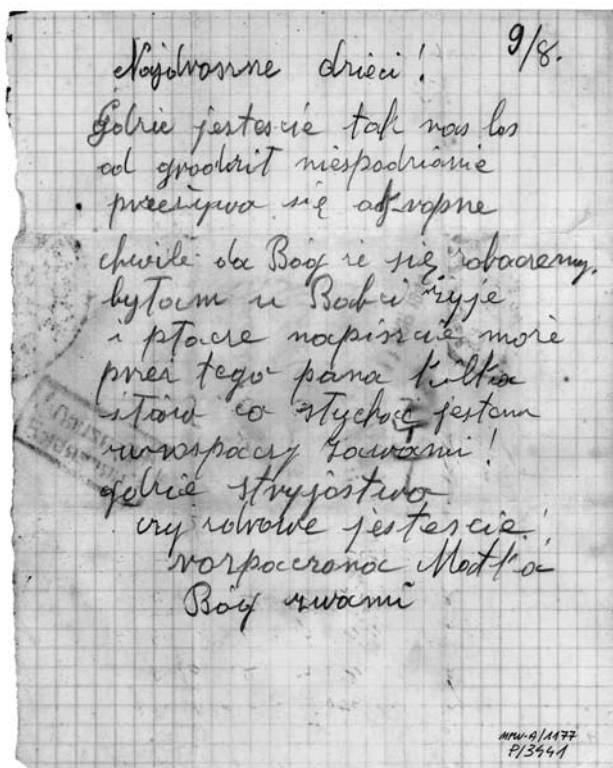 9/8.
Najdrorzne dzieci!
Gdzie jestescie tak nas los
od grodzit niespodzianie
przeżywa się okropne
chwile da Bóg że się zobaczemy.
byłam u Babci żyje
i płacze napiszcie może
przez tego pana kilka
słów co słychać jestem
w rozpaczy zawami!
gdzie stryjostwo
czy zdrowe jestescie!
rozpaczona Matka
Bóg zwami
MPW-A/1177
P/3441